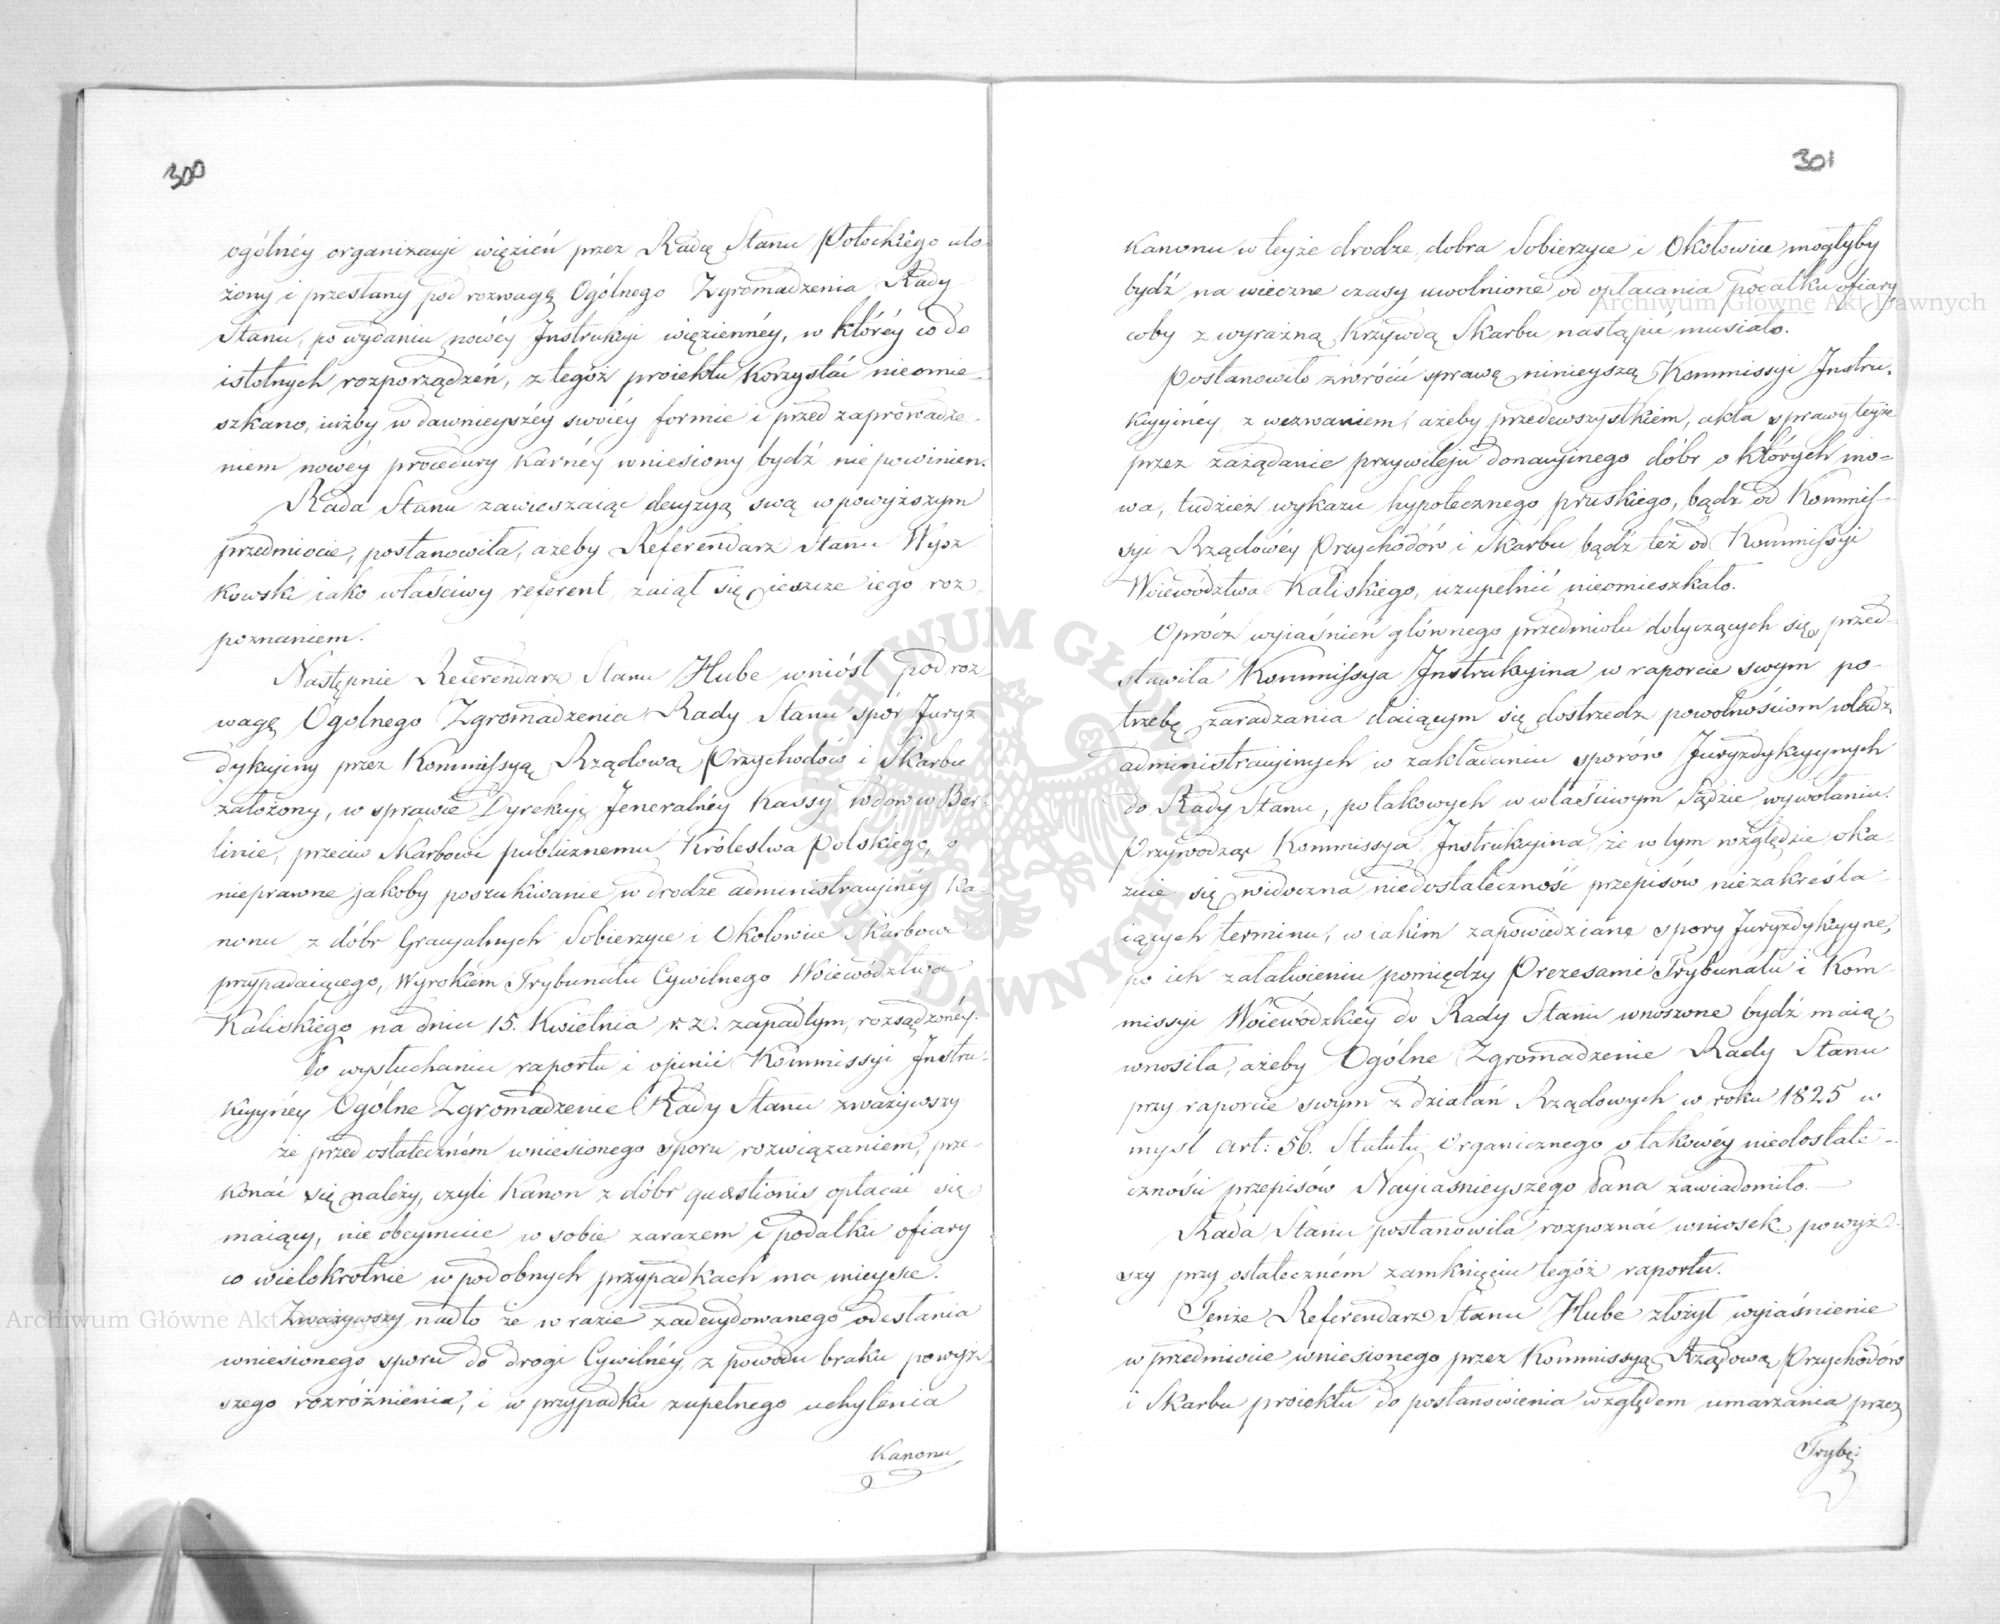 300
ogólnéy organizacyi więzień przez Radcę Stanu Potockiego uło-
żony i przesłany pod rozwagę Ogólnego Zgromadzenia Rady
Stanu, po wydaniu nowéy Instrukcyi więziennéy, w któréy co do
istotnych rozporządzeń, z tegóż proiektu korzystać nieomie-
szkano, iużby w dawnieyszéy swoiéy formie i przed zaprowadze-
niem nowéy procedury karnéy wniesiony bydź nie powinien.
Rada Stanu zawieszaiąc decyzyą swą w powyższym
przedmiocie, postanowiła, ażeby Referendarz Stanu Wysz
kowski iako właściwy referent, zaiął się ieszcze iego roz-
poznaniem.
Następnie Referendarz Stanu Hube wniósł pod roz
wagę Ogólnego Zgromadzenia Rady Stanu spór Juryz
dykcyiny przez Kommissyą Rządową Przychodów i Skarbu
założony, w sprawie Dyrekcyi Jeneralnéy Kassy wdów w Ber-
linie, przeciw Skarbowi publicznemu Królestwa Polskiego, o
nieprawne jakoby poszukiwanie w drodze administracyinéy Ka-
nonu z dóbr Gracyalnych Sobierzyce i Okołowice Skarbowi
przypadaiącego, Wyrokiem Trybunału Cywilnego Woiewództwa
Kaliskiego na dniu 15. Kwietnia r. z. zapadłym, rozsądzonéy.
Po wysłuchaniu raportu i opinii Kommissyi Instru-
kcyynéy Ogólne Zgromadzenie Rady Stanu zważywszy
że przed ostateczném wniesionego sporu rozwiązaniem, prze-
konać się należy, czyli Kanon z dóbr quæstionis opłacać się
maiący, nie obeymuie w sobie zarazem i podatku ofiary
co wielokrotnie w podobnych przypadkach ma mieysce.
Zważywszy nadto że w razie zadecydowanego odesłania
wniesionego sporu do drogi Cywilnéy, z powodu braku powyż-
szego rozróżnienia, i w przypadku zupełnego uchylenia
Kanonu
301
Kanonu w teyże drodze, dobra Sobierzyce i Okołowice mogłyby
bydź na wieczne czasy uwolnione od opłacania podatku ofiary
coby z wyraźną krzywdą Skarbu nastąpić musiało.
Postanowiło zwrócić sprawę ninieyszą Kommissyi Instru-
kcyinéy, z wezwaniem, ażeby przedewszystkiem, akta sprawy teyże
przez zażądanie przywileju donacyinego dóbr o których mo-
wa, tudzież wykazu hypotecznego pruskiego, bądź od Kommis-
syi Rządowéy Przychodów i Skarbu bądź też od Kommissyi
Woiewództwa Kaliskiego, uzupełnić nieomieszkało.
Oprócz wyiaśnień głównego przedmiotu dotyczących się, przed-
stawiła Kommissya Instrukcyina w raporcie swym po-
trzebę zaradzania daiącym się dostrzedz powolnościom władz
administracyinych w zakładaniu sporów Juryzdykcyynych
do Rady Stanu, po takowych w właściwym Sądzie wywołaniu.
Przywodząc Kommissya Instrukcyina, że w tym względzie oka-
zuie się widoczna niedostateczność przepisów niezakréśla-
iących terminu, w iakim zapowiedziane spory Juryzdykcyyne,
po ich załatwieniu pomiędzy Prezesami Trybunału i Kom-
missyi Woiewódzkiéy do Rady Stanu wnoszone bydź maią
wnosiła, ażeby Ogólne Zgromadzenie Rady Stanu
przy raporcie swym z działań Rządowych w roku 1825 w
myśl art: 56. Statutu Organicznego o takowéy niedostate-
czności przepisów Nayiaśnieyszego Pana zawiadomiło. —
Rada Stanu postanowiła rozpoznać wniosek powyż-
szy przy ostateczném zamknięciu tegóż raportu.
Tenże Referendarz Stanu Hube złożył wyiaśnienie
w przedmiocie wniesionego przez Kommissyą Rządową Przychodów
i Skarbu proiektu do postanowienia względem umarzania przez
Trybu:
Archiwum Główne Akt Dawnych
Archiwum Główne Akt Dawnych
ARCHIWUM GŁÓWNE AKT DAWNYCH